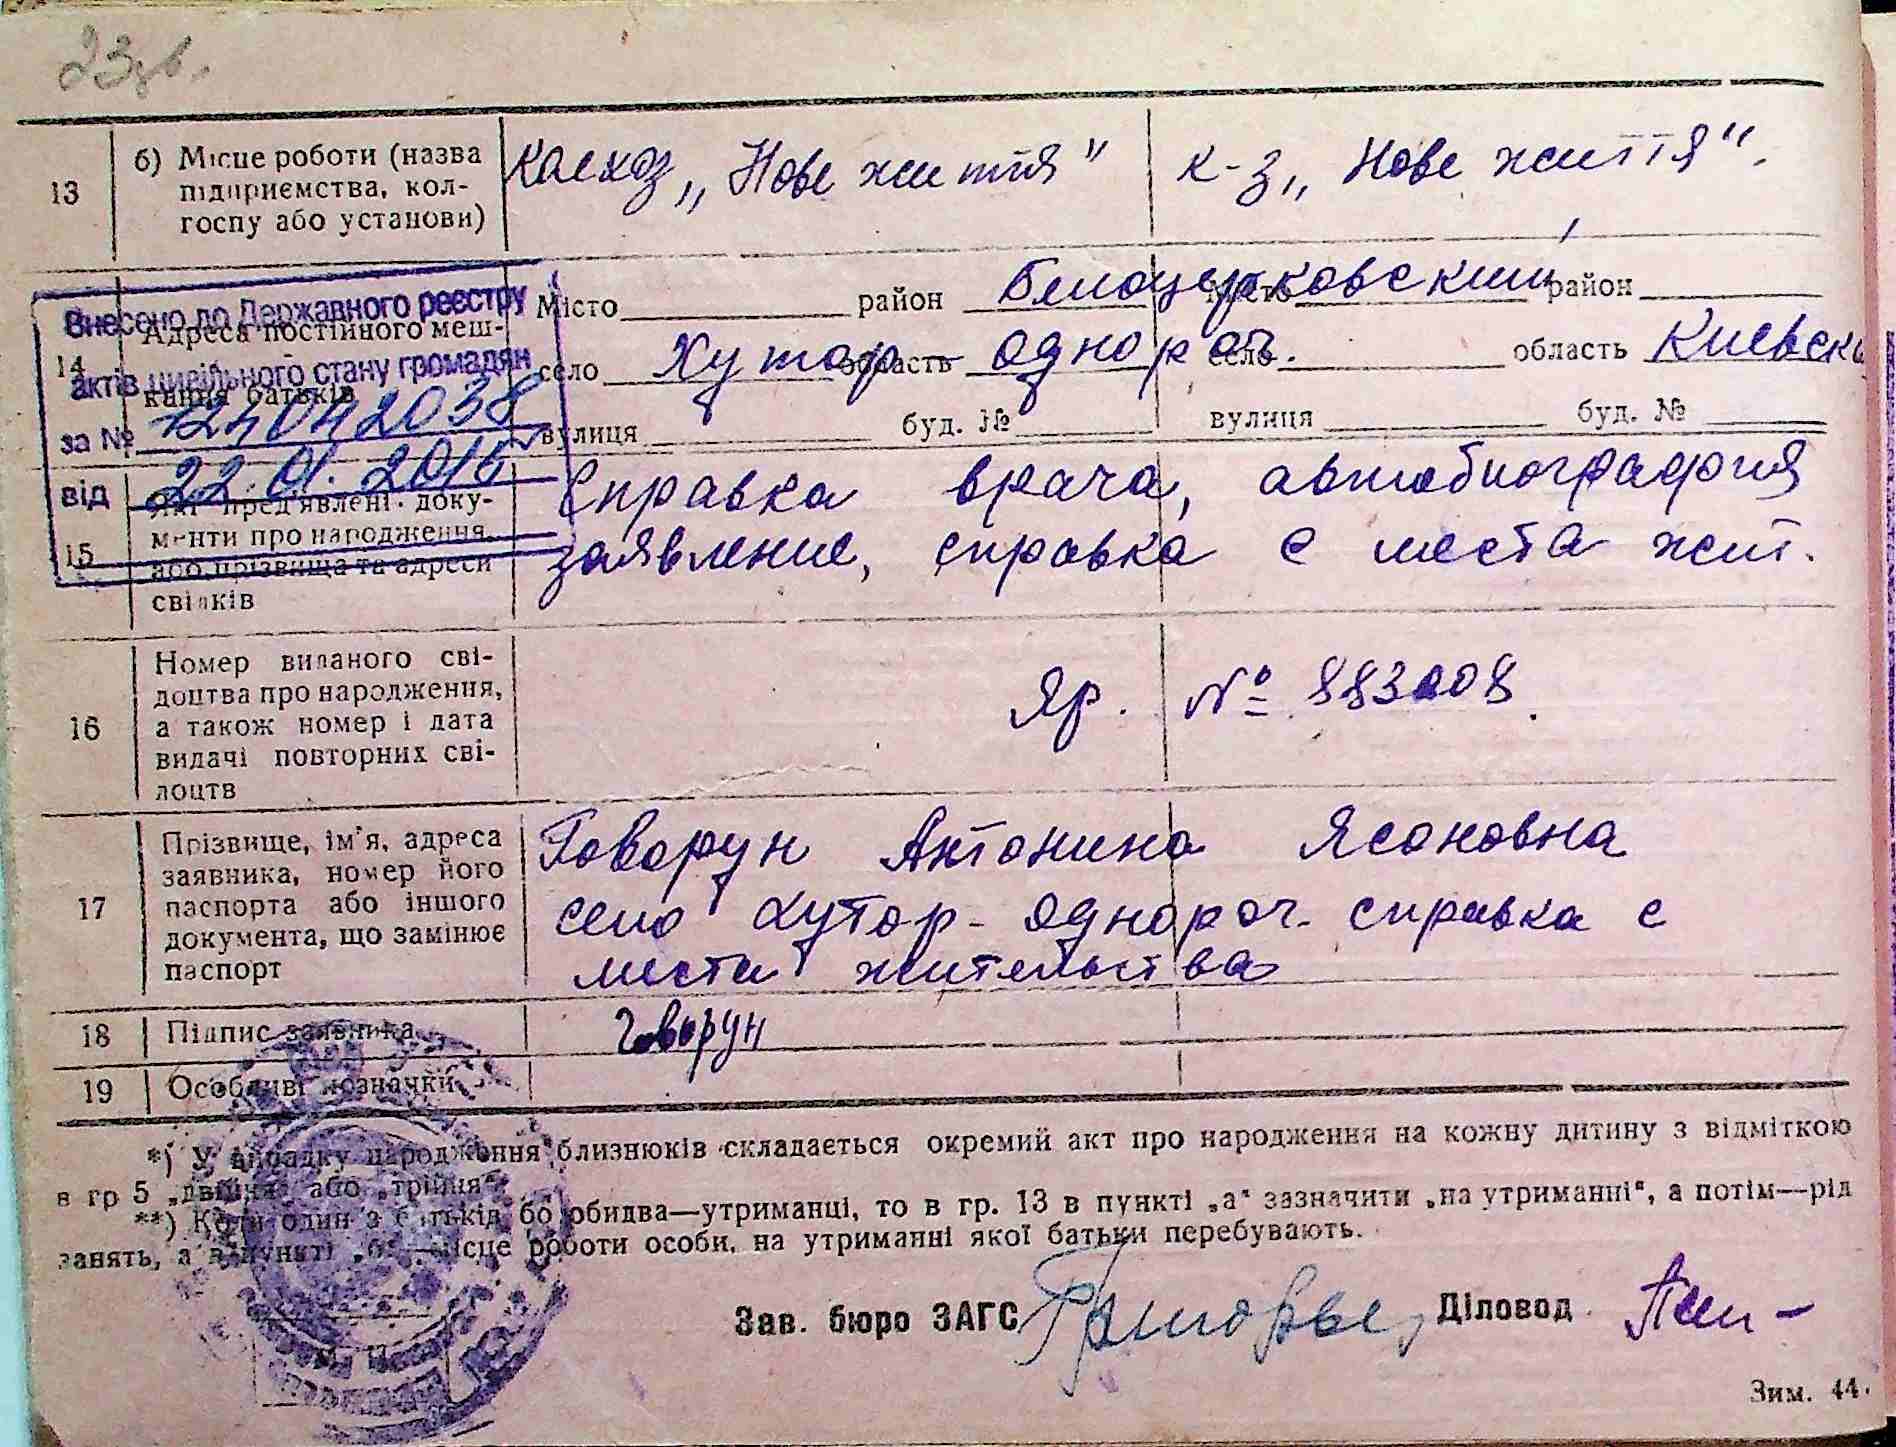 23зв.
13
б) Місце роботи (назва
підприємства, кол-
госпу або установи)
колхоз „Нове життя"
к-з „Нове життя".
Внесено до Державного реєстру
актів цивільного стану громадян
за №
від 22.01.2015
14
Адреса постійного меш-
кання батьків
Місто район Белоцерковский Місто район
село Хутор область однороч. село область Киевска
вулиця буд. № вулиця буд. №
15
Які пред'явлені доку-
менти про народження
або прізвища та адреси
свідків
Справка врача, автобиография
заявление, справка с места жит.
16
Номер виданого сві-
доцтва про народження,
а також номер і дата
видачі повторних сві-
доцтв
Яр. № 883008.
17
Прізвище, ім'я, адреса
заявника, номер його
паспорта або іншого
документа, що замінює
паспорт
Говорун Антонина Ясоновна
село Хутор-однороч. справка с
места жительства
18
Підпис заявника
Говорун
19
Особливі позначки
*) У випадку народження близнюків складається окремий акт про народження на кожну дитину з відміткою
в гр 5 „двійня" або „трійня".
**) Коли один з батьків або обидва—утриманці, то в гр. 13 в пункті „а" зазначити „на утриманні", а потім—рід
занять, а в пункті „б"—місце роботи особи, на утриманні якої батьки перебувають.
Зав. бюро ЗАГС Діловод
Зим. 44.